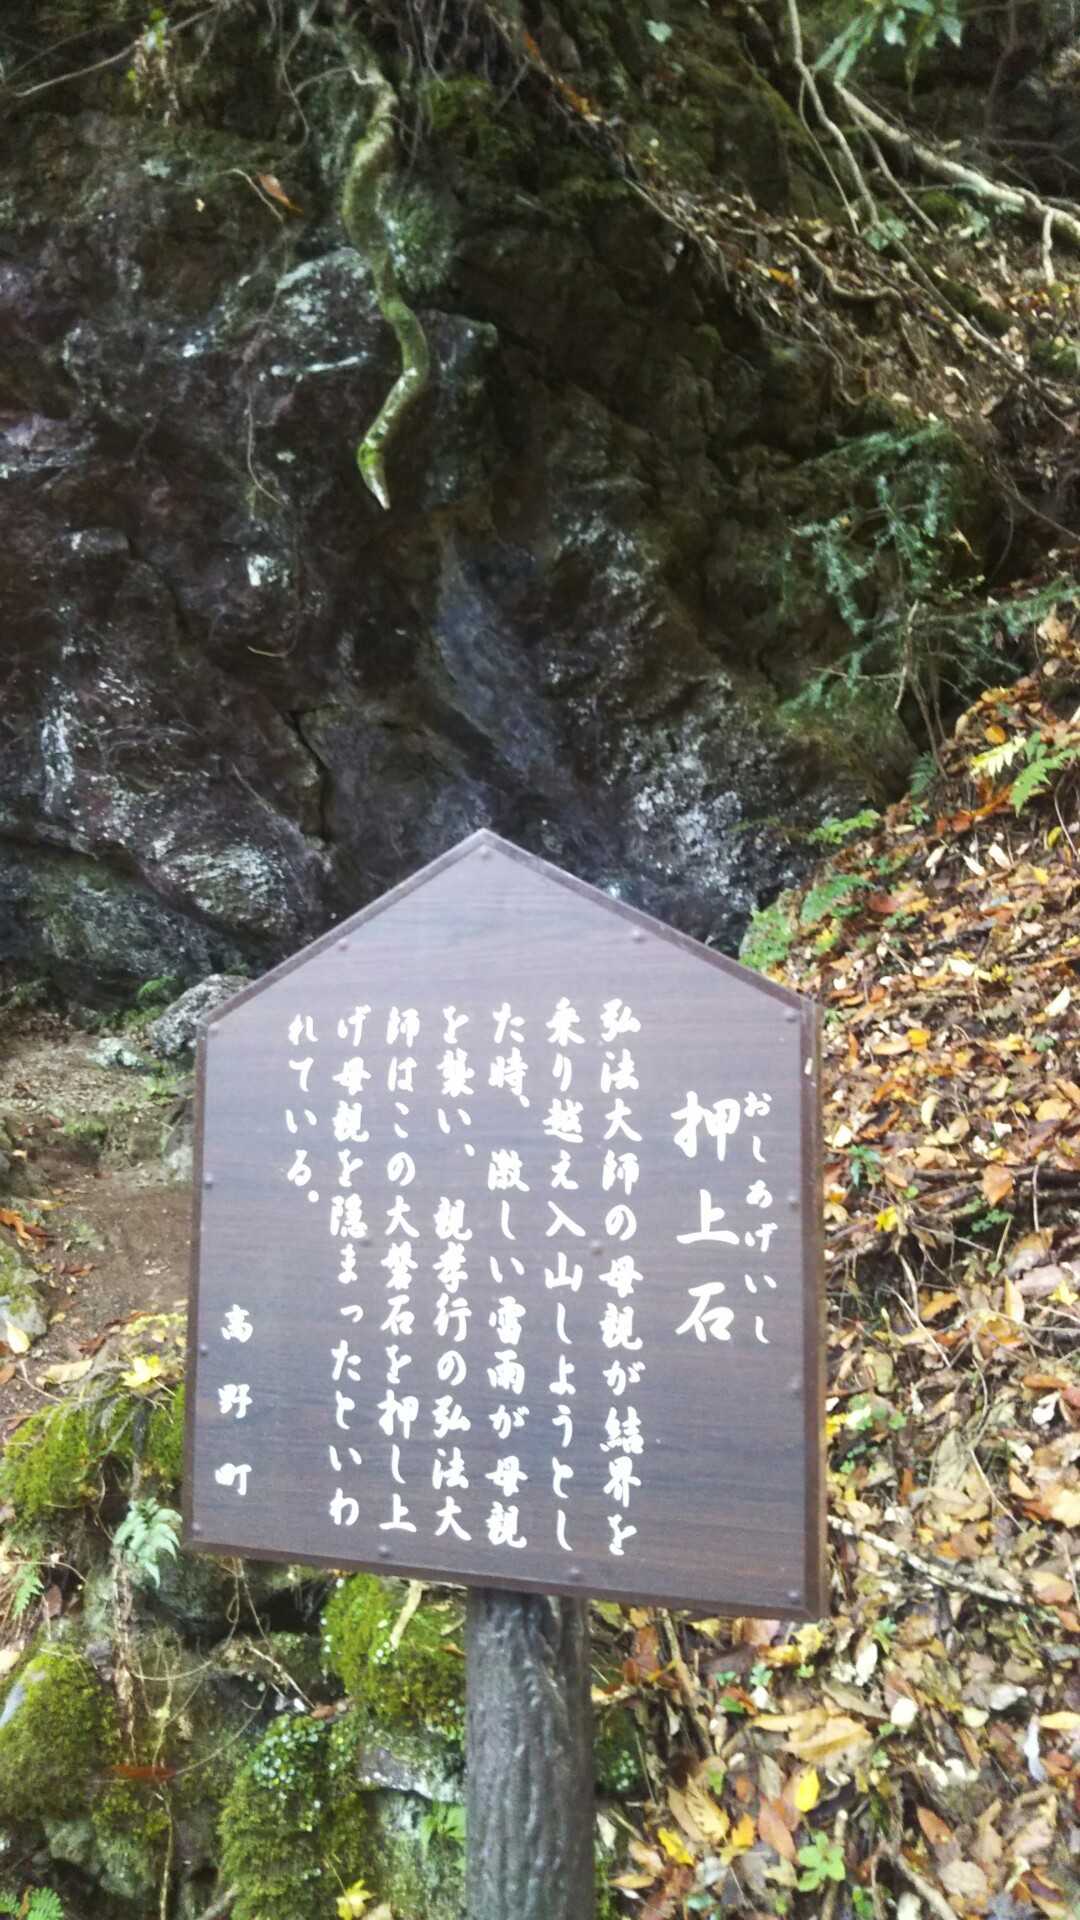 おしあげいし
押上石
弘法大師の母親が結界を
乗り越え入山しようとし
た時、激しい雷雨が母親
を襲い、親孝行の弘法大
師はこの大磐石を押し上
げ母親を隠まったといわ
れている。
高野町